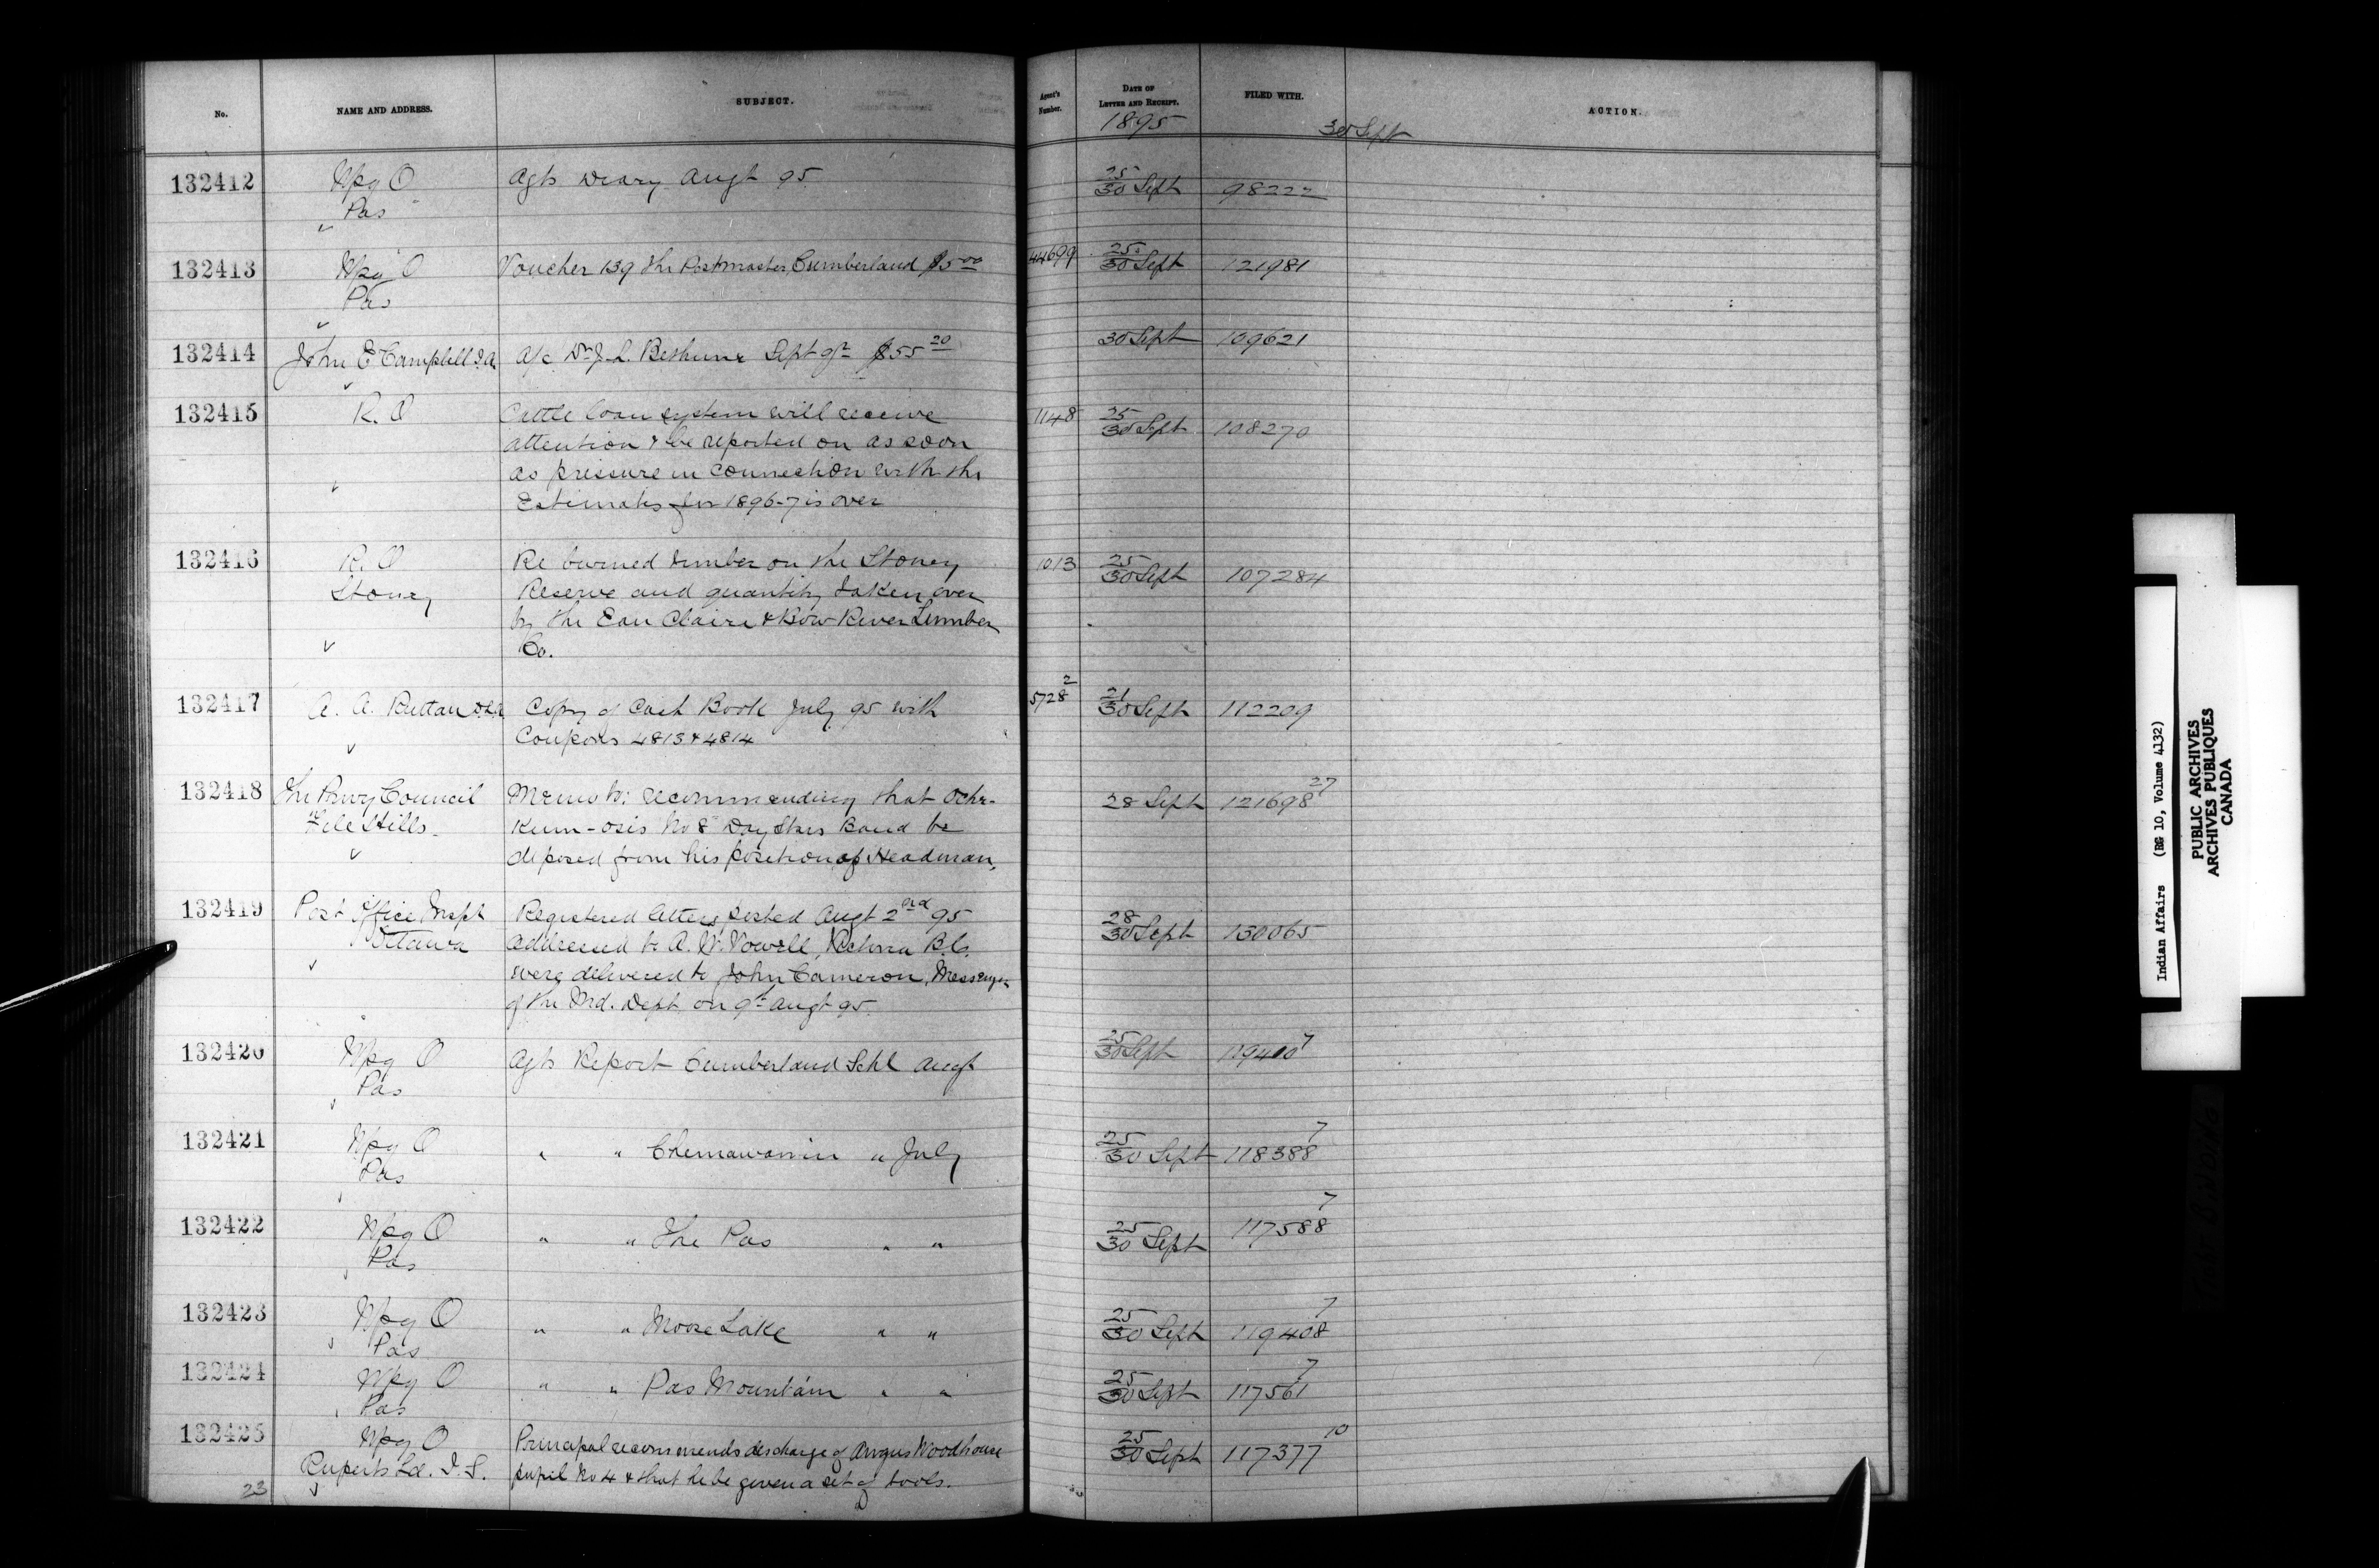 No. NAME AND ADDRESS. SUBJECT. Agent's Number. DATE OF LETTER AND RECEIPT. FILED WITH. ACTION.
1895 30 Sept
132412 Wpg O Agts Diary Augt 95 25/30 Sept 98222
Pas
132413 Wpg O Voucher 139 the Postmaster Cumberland $5 00 44699 25/30 Sept 121981
Pas
132414 John E Campbell I.A. A/c Dr J. L. Bethune Sept qr $55 20 30 Sept 109621
132415 R. O Cattle loan system will receive 1148 25/30 Sept 108270
attention & be reported on as soon
as pressure in connection with the
Estimates for 1896-7 is over
132416 R. O Re burned timber on the Stoney 1013 25/30 Sept 107284
Stoney Reserve and quantity taken over
by the Eau Claire & Bow River Lumber
Co.
132417 A. A. Ruttan D.L.A. Copy of Cash Book July 95 with 5728 2 21/30 Sept 112209
Coupons 4813 & 4814
132418 The Privy Council Memo to: recommending that Ochr- 28 Sept 121698 27
File Hills Kum-osis No 8 Day Stars Band be
deposed from his position of Headman,
132419 Post Office Inspt Registered letters posted Augt 2nd 95 28/30 Sept 130065
Ottawa addressed to A. W. Vowell, Victoria B.C.
were delivered to John Cameron, Messenger
of the Ind. Dept on 9th Augt 95.
132420 Wpg O Agts Report Cumberland Schl Augt 25/30 Sept 119400 7
Pas
132421 Wpg O " " Chemawawin " July 25/30 Sept 118388 7
Pas
132422 Wpg O " " The Pas " " 25/30 Sept 117588 7
Pas
132423 Wpg O " " Moose Lake " " 25/30 Sept 119408 7
Pas
132424 Wpg O " " Pas Mountain " " 25/30 Sept 117561 7
Pas
132425 Wpg O Principal recommends discharge of Angus Woodhouse 25/30 Sept 117377 10
Ruperts Ld. I. S. pupil No 4 & that he be given a set of tools.
23
Indian Affairs (RG 10, Volume 4132)
PUBLIC ARCHIVES
ARCHIVES PUBLIQUES
CANADA